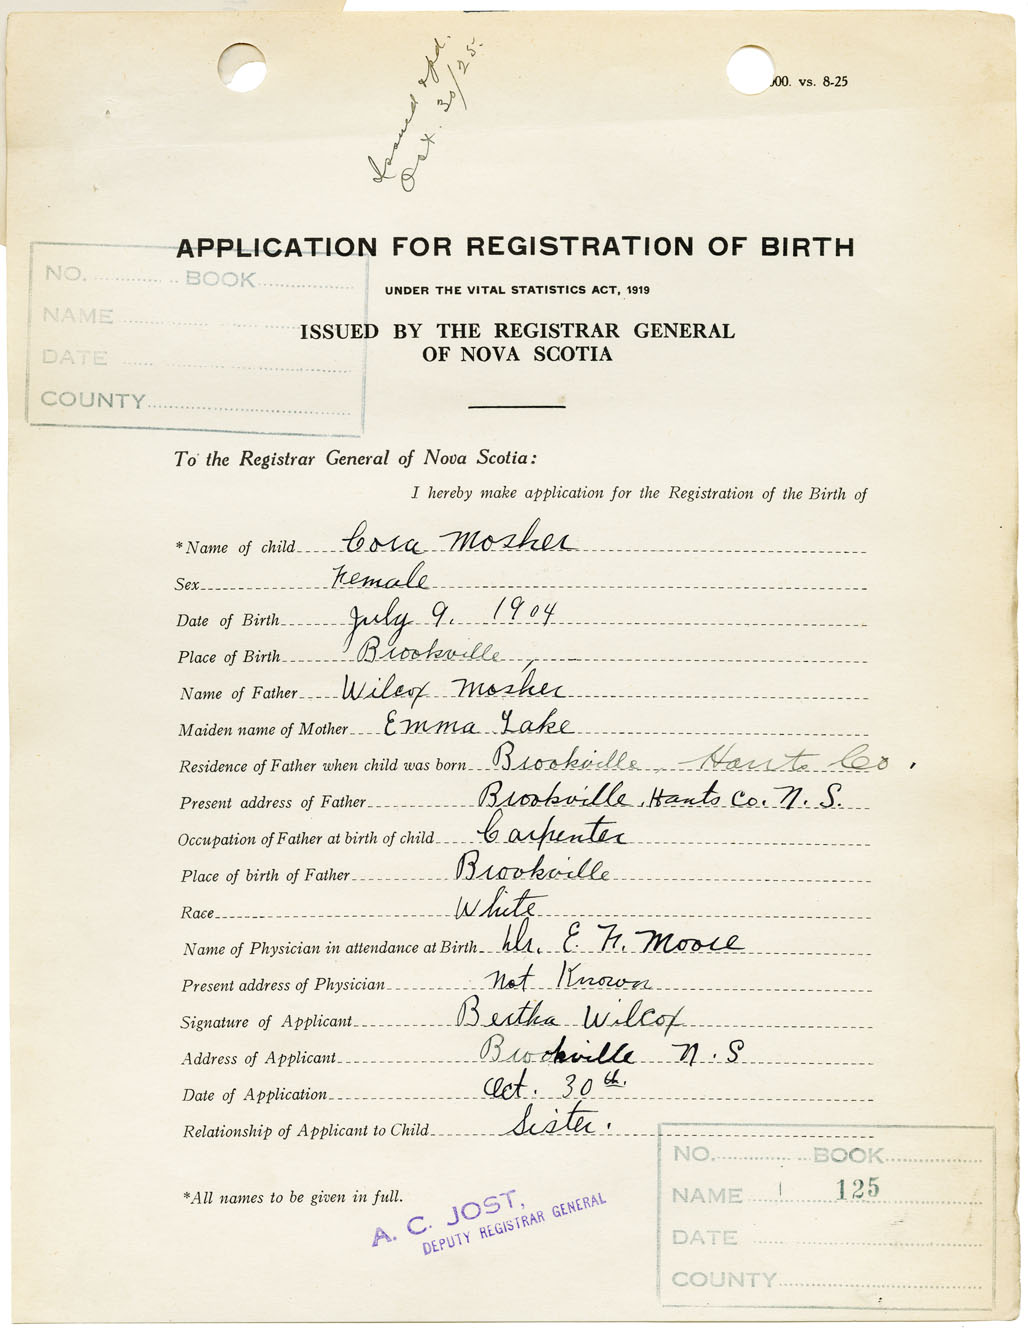 Issued & pd.
Oct. 30/25.
000. vs. 8-25
APPLICATION FOR REGISTRATION OF BIRTH
NO. BOOK
UNDER THE VITAL STATISTICS ACT, 1919
NAME
ISSUED BY THE REGISTRAR GENERAL
OF NOVA SCOTIA
DATE
COUNTY
To the Registrar General of Nova Scotia:
I hereby make application for the Registration of the Birth of
*Name of child Cora Mosher
Sex Female
Date of Birth July 9, 1904
Place of Birth Brookville,
Name of Father Wilcox Mosher
Maiden name of Mother Emma Lake
Residence of Father when child was born Brookville, Hants Co.
Present address of Father Brookville, Hants Co. N. S.
Occupation of Father at birth of child Carpenter
Place of birth of Father Brookville
Race White
Name of Physician in attendance at Birth Dr. E. F. Moore
Present address of Physician not Known
Signature of Applicant Bertha Wilcox
Address of Applicant Brookville N.S
Date of Application Oct. 30th.
Relationship of Applicant to Child Sister.
NO. BOOK
NAME 125
DATE
COUNTY
*All names to be given in full.
A. C. JOST,
DEPUTY REGISTRAR GENERAL